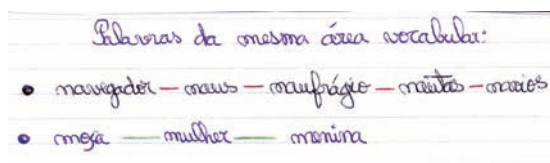 Palavras da mesma área vocabular:
• navegador — naus — naufrágio — nautas — navios
• moça — mulher — menina